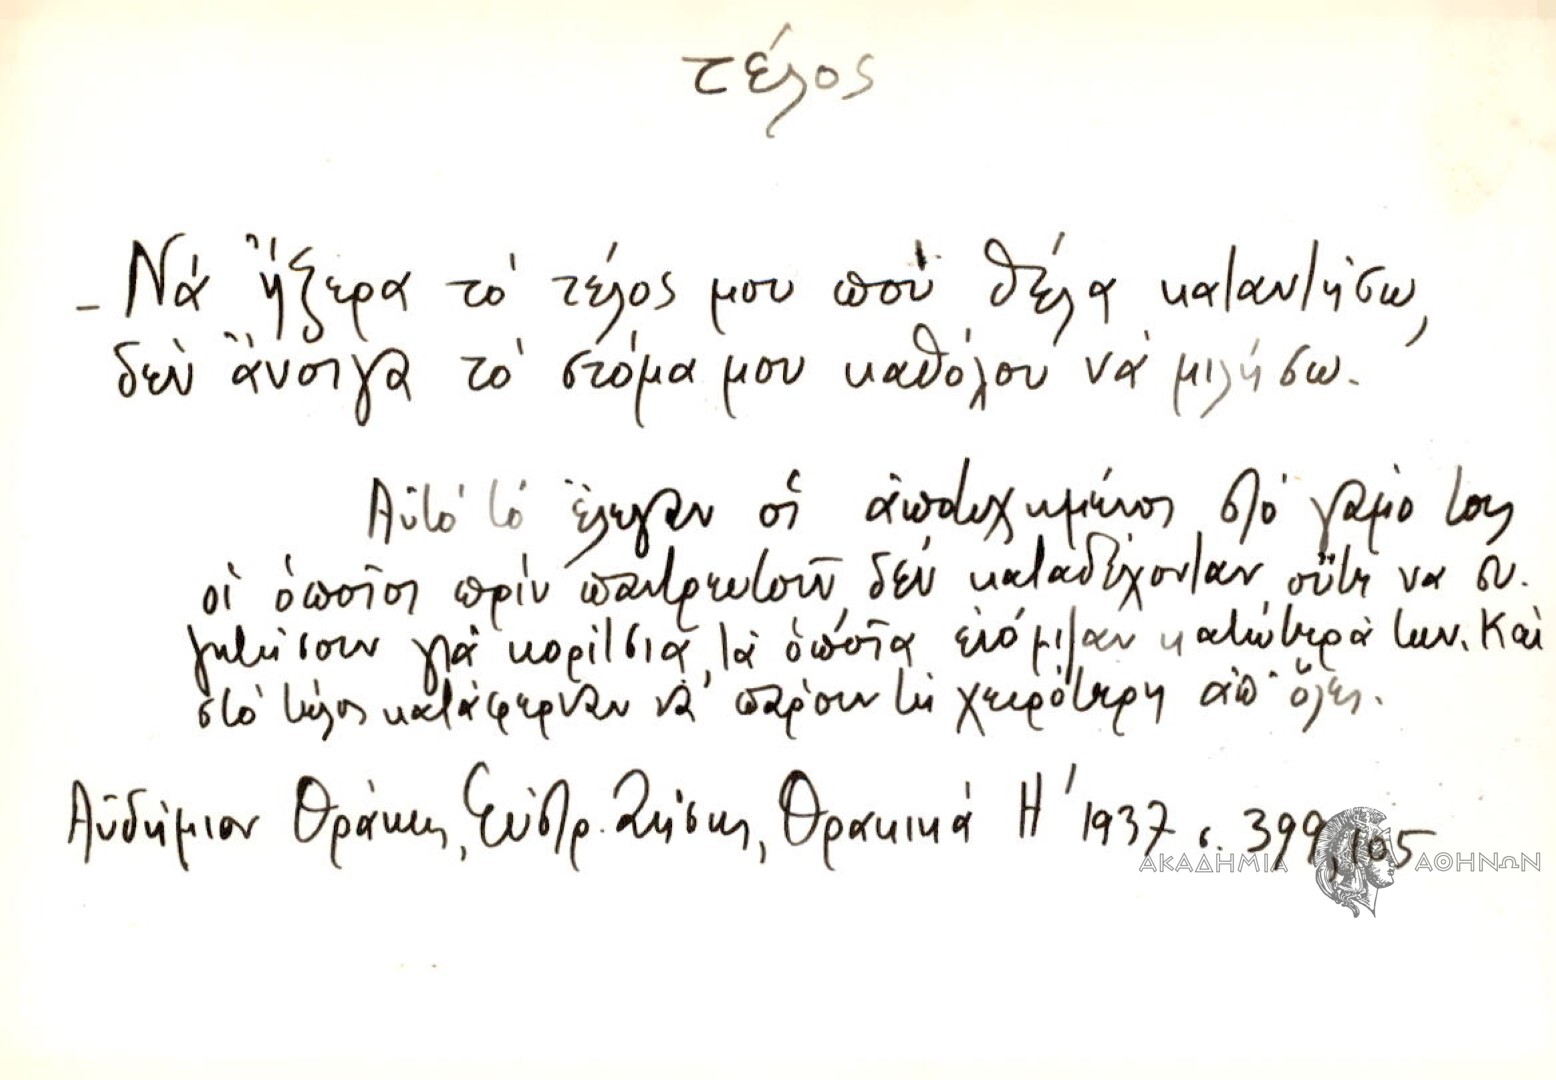 τέλος
- Νά ἤξερα τό τέλος μου πού θέλα καταντήσω,
δέν ἄνοιγα τό στόμα μου καθόλου νά μιλήσω.
Αὐτό τό ἔλεγαν οἱ ἀποτυχημένοι στό γάμο τους
οἱ ὁποῖοι πρίν παντρευτοῦν δέν καταδέχονταν οὔτε να συ-
ζητήσουν γιά κορίτσια τά ὁποῖα ἐνόμιζαν κατώτερά των. Καί
στό τέλος κατάφερναν νά πάρουν τή χειρότερη ἀπ' ὅλες.
Αὐδήμιον Θράκης, Εὐστρ. Ζήσης, Θρακικά Η' 1937 σ. 399, 105
ΑΚΑΔΗΜΙΑ ΑΘΗΝΩΝ